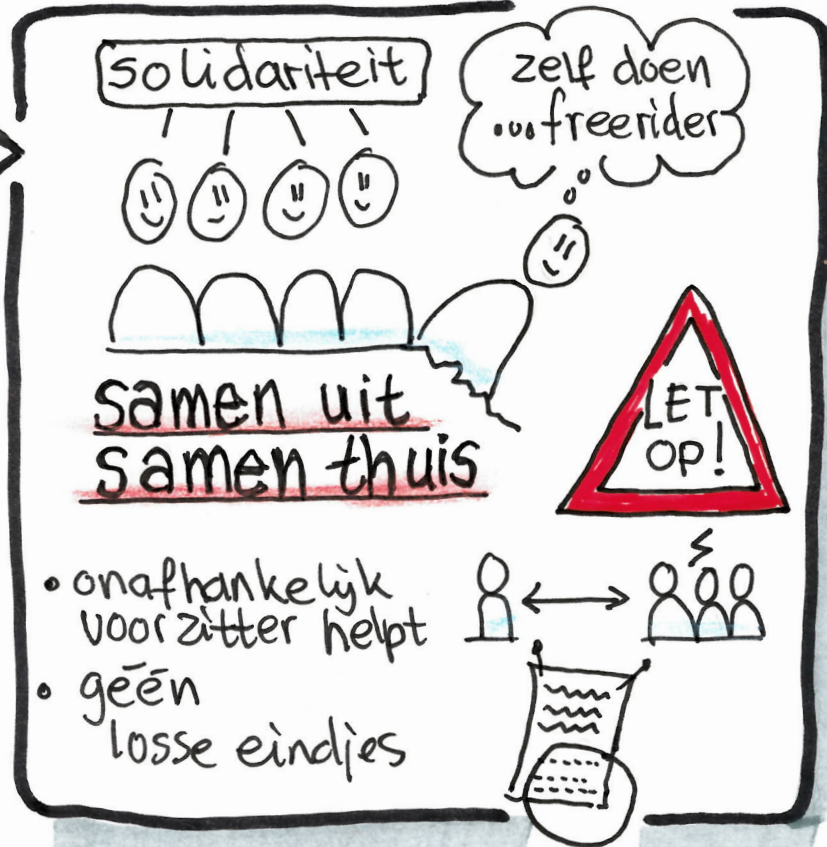 solidariteit
zelf doen
...freerider
samen uit
samen thuis
LET
OP!
• onafhankelijk
voorzitter helpt
• géén
losse eindjes